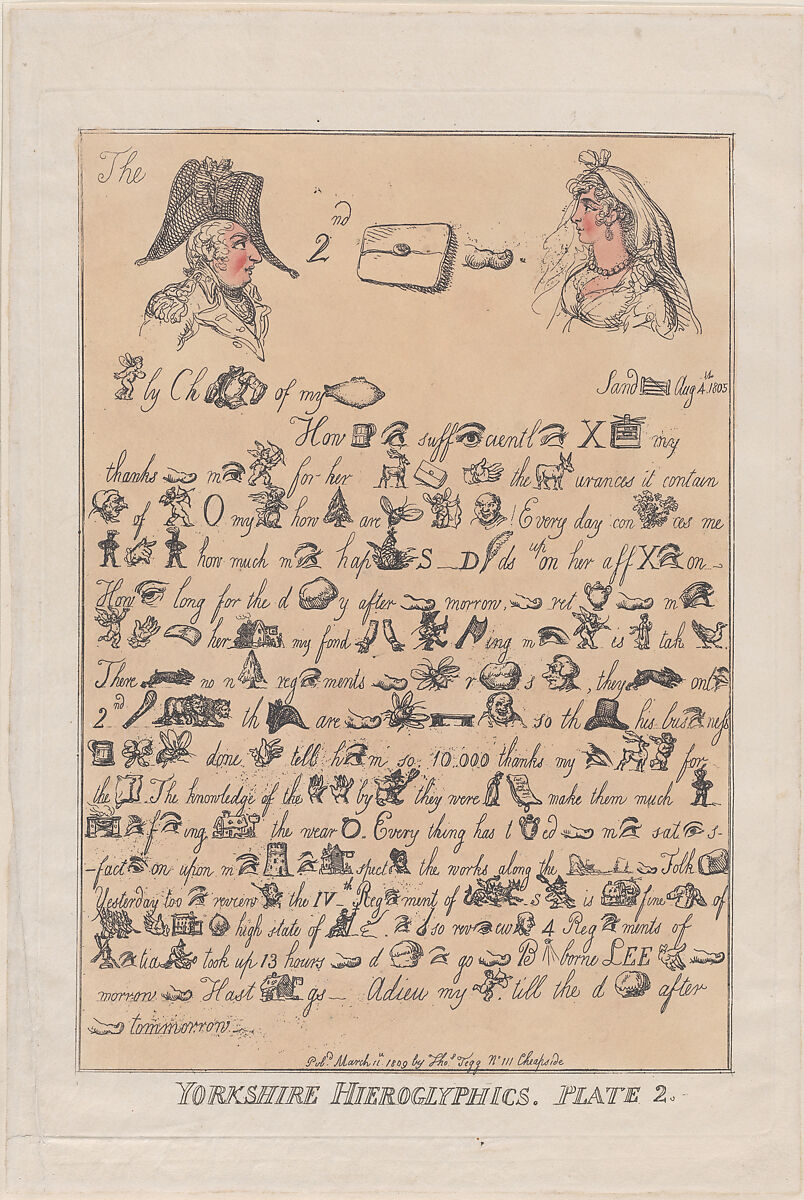 The
2nd
ly Ch of my Sand Aug 4th 1805
How suff cientl X my
thanks m for her the urances it contain
of O my how are ! Every day con ces me
how much m hap S _ D ds up on her aff X on _
How long for the d y after morrow, ret m
her my fond ing m is tak
There no n reg ments r s , they onl
2nd th are so th his bus ness
done tell h m so 10.000 thanks my for
the . The knowledge of the by they were make them much
f ing, the wear O. Every thing has t ed m sat s-
-fact on upon m spect the works along the Folk
Yesterday too review the IVth Reg ment of s is fine of
high state of so rev ew 4 Reg ments of
tia took up 13 hours d go B borne LEE
morrow Hast gs _ Adieu my . till the d after
tommorrow _
Pubd March 11th 1809 by Thos Tegg No 111 Cheapside
YORKSHIRE HIEROGLYPHICS. PLATE 2.